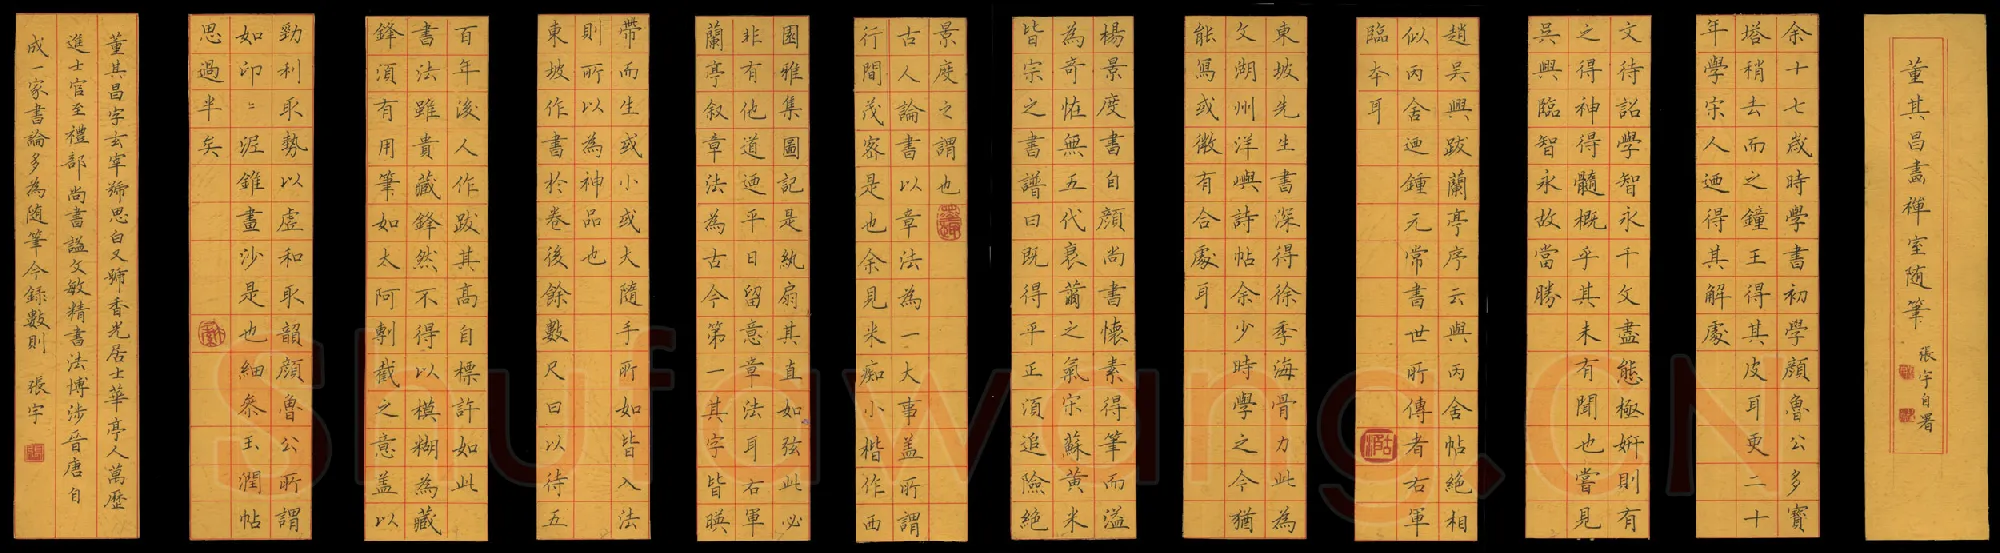 董其昌畫禪室随筆
張宇自署
余十七歲時學書初學顏魯公多寶
塔稍去而之鐘王得其皮耳更二十
年學宋人迺得其解處
文待詔學智永千文盡態極妍則有
之得神得髓概乎其未有聞也嘗見
吳興臨智永故當勝
趙吳興跋蘭亭序云與丙舍帖絕相
似丙舍迺鍾元常書世所傳者右軍
臨本耳
東坡先生書深得徐季海骨力此為
文湖州洋嶼詩帖余少時學之今猶
能寫或微有合處耳
楊景度書自顏尚書懷素得筆而溢
為奇怪無五代衰薾之氣宋蘇黃米
皆宗之書譜曰既得平正須追險絕
景度之謂也
古人論書以章法為一大事盖所謂
行間茂密是也余見米痴小楷作西
園雅集圖記是紈扇其直如弦此必
非有他道迺平日留意章法耳右軍
蘭亭叙章法為古今第一其字皆暎
帶而生或小或大隨手所如皆入法
則所以為神品也
東坡作書於卷後餘數尺曰以待五
百年後人作跋其高自標許如此
書法雖貴藏鋒然不得以模糊為藏
鋒須有用筆如太阿剸截之意盖以
勁利取勢以虛和取韻顏魯公所謂
如印印泥錐畫沙是也細参玉潤帖
思過半矣
董其昌字玄宰號思白又號香光居士華亭人萬歷
進士官至禮部尚書謚文敏精書法博涉晉唐自
成一家書論多為随筆今録數則 張宇
Shufawang.CN